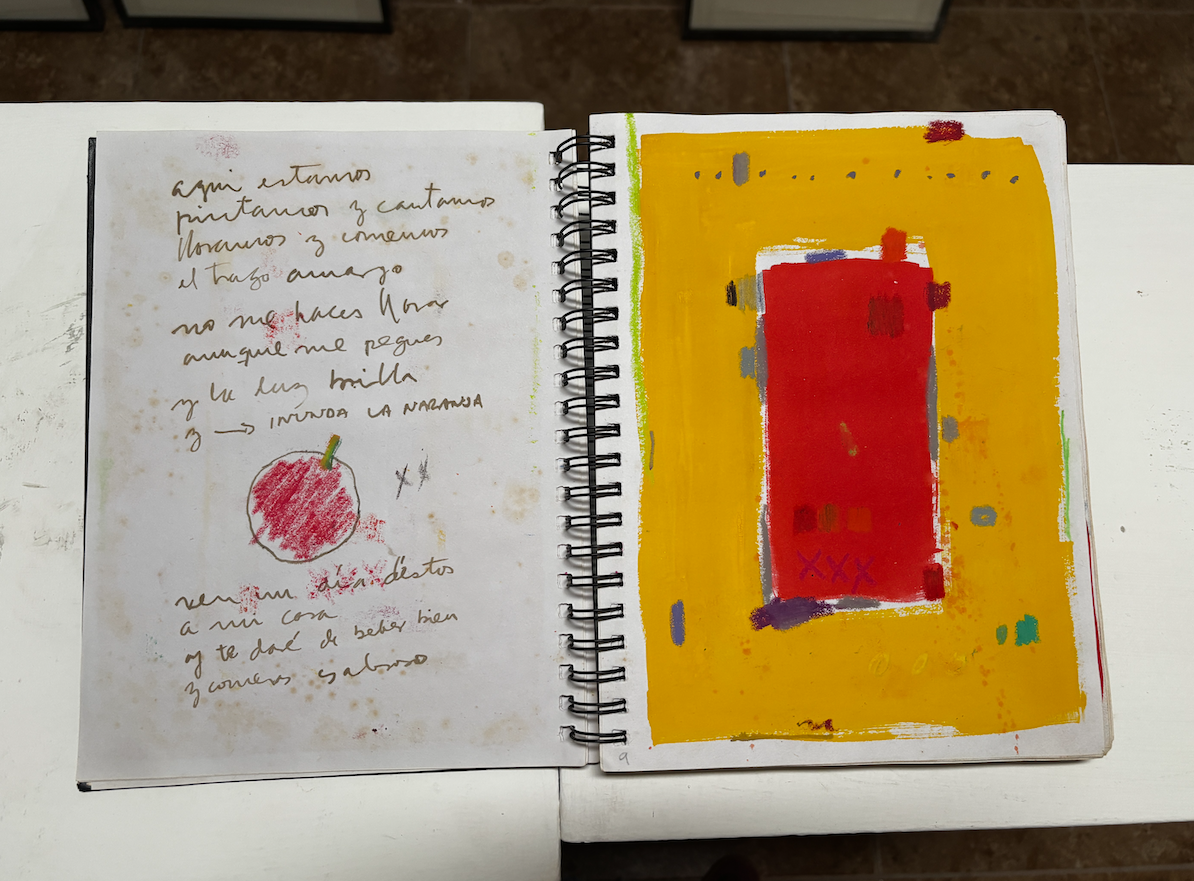 aqui estamos
pintamos y cantamos
lloramos y comemos
el trazo amargo
no me haces llorar
aunque me pegues
y la luz brilla
y → INUNDA LA NARANJA
XX
ven un dia d'estos
a mi casa
y te daré de beber bien
y comeras
XXX
9